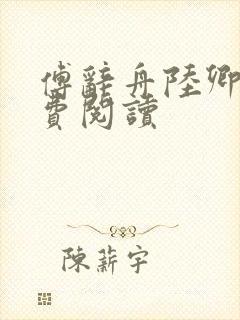 傅辭舟陸卿
費閱讀
陳薪宇